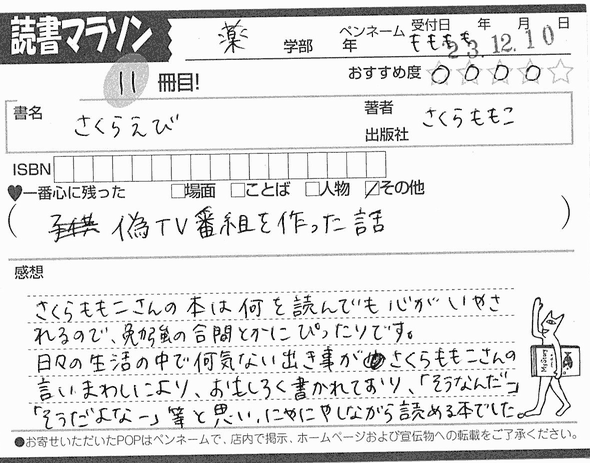 読書マラソン
薬 学部 年 ペンネーム ももも 受付日 年 月 日
23.12.10
おすすめ度 ☆☆☆☆☆
11 冊目!
書名 さくらえび
著者 出版社 さくらももこ
ISBN
♥一番心に残った □場面 □ことば □人物 ☑その他
( 偽TV番組を作った話 )
感想
さくらももこさんの本は何を読んでも心がいやさ
れるので、勉強の合間とかにぴったりです。
日々の生活の中で何気ない出き事がさくらももこさんの
言いまわしにより、おもしろく書かれており、「そうなんだー」
「そうだよなー」等と思い、にやにやしながら読める本でした。
●お寄せいただいたPOPはペンネームで、店内で掲示、ホームページおよび宣伝物への転載をご了承ください。